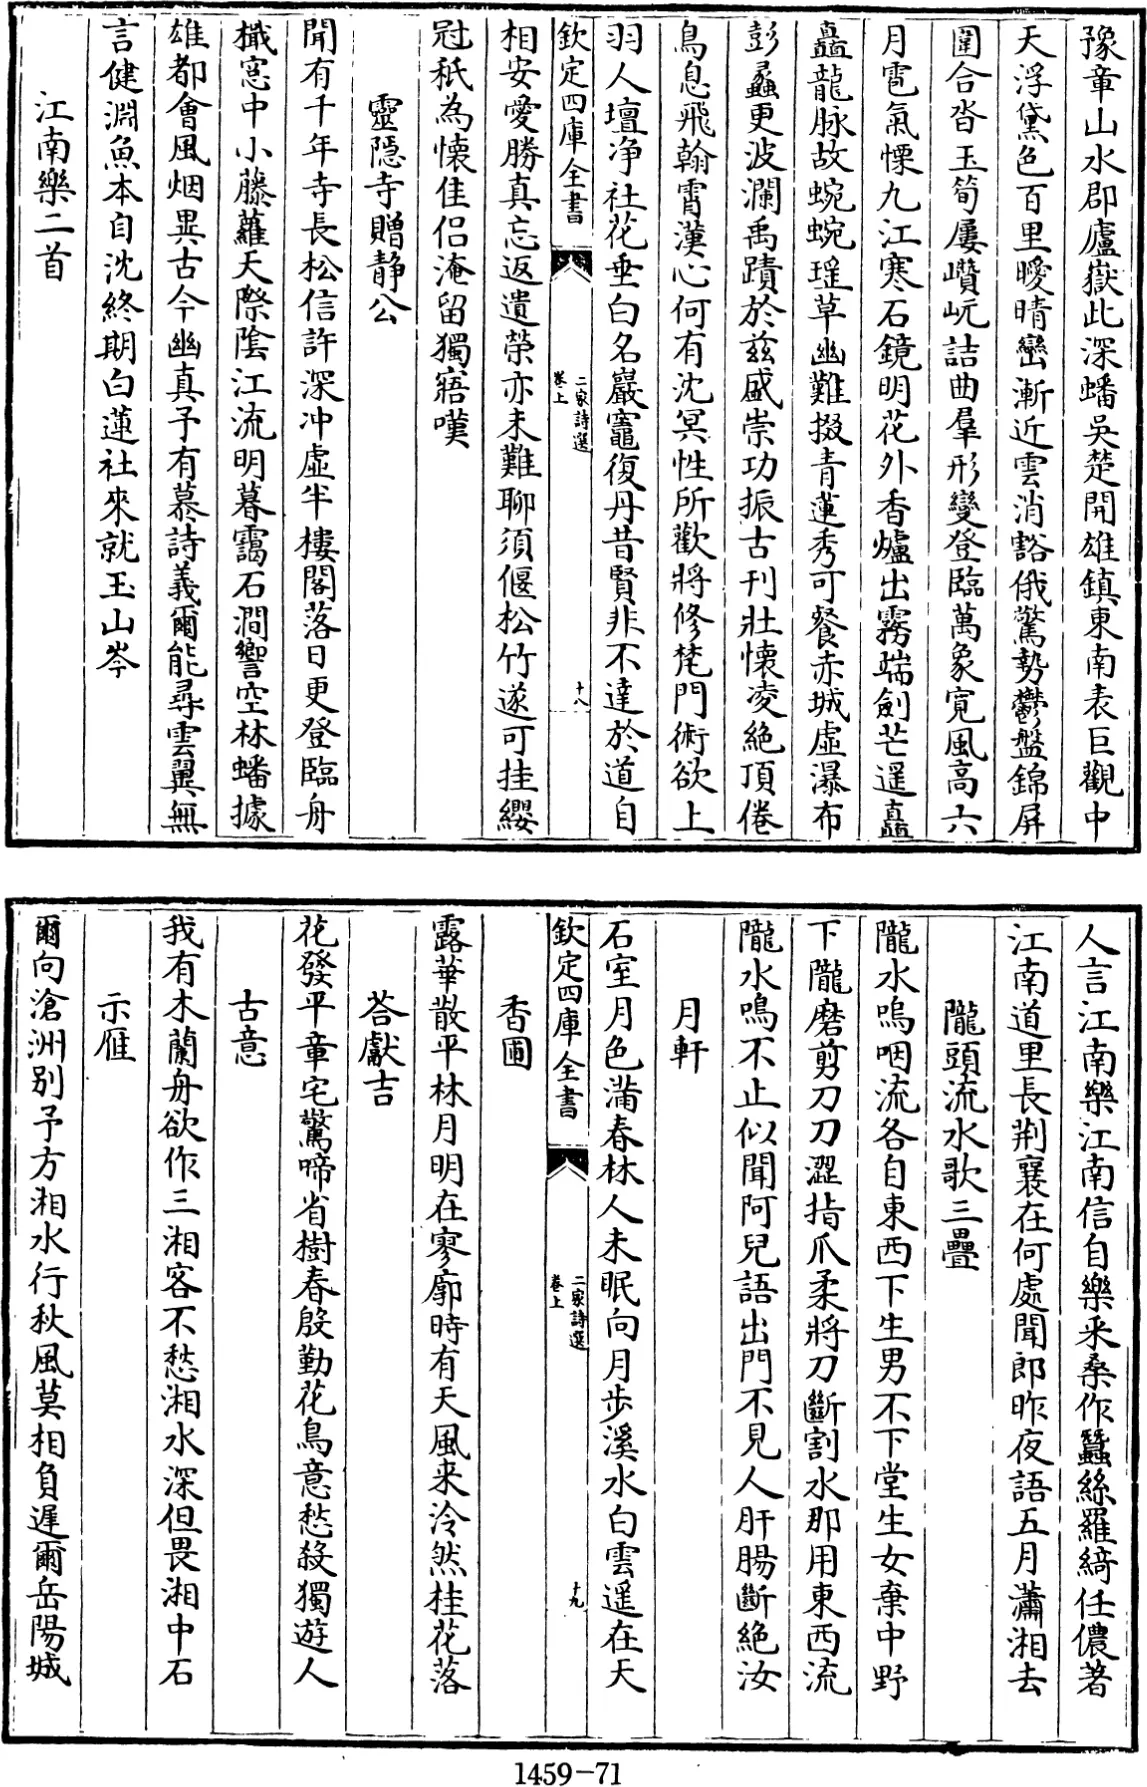 豫章山水郡廬嶽此深蟠吳楚開雄鎮東南表巨觀中
天浮黛色百里曖晴巒漸近雲消豁俄驚勢鬱盤錦屏
圍合沓玉筍屢巑岏詰曲羣形變登臨萬象寬風高六
月雹氣慄九江寒石鏡明花外香爐出霧端劍芒遥矗
矗龍脉故蜿蜿瑶草幽難掇青蓮秀可餐赤城虛瀑布
彭蠡更波瀾禹蹟於兹盛崇功振古刊壯懷凌絶頂倦
鳥息飛翰霄漢心何有沈冥性所歡將修梵門術欲上
羽人壇净社花垂白名巖竈復丹昔賢非不達於道自
欽定四庫全書
二家詩選
卷上
十八
相安愛勝真忘返遺榮亦未難聊須偃松竹遂可挂纓
冠秪為懷佳侣淹留獨寤嘆
靈隱寺贈静公
聞有千年寺長松信許深冲虛半樓閣落日更登臨舟
檝窓中小藤蘿天際陰江流明暮靄石澗響空林蟠據
雄都會風烟異古今幽真予有慕詩義爾能尋雲翼無
言健淵魚本自沈終期白蓮社來就玉山岑
江南樂二首
人言江南樂江南信自樂采桑作蠶絲羅綺任儂著
江南道里長荆襄在何處聞郎昨夜語五月瀟湘去
隴頭流水歌三疊
隴水嗚咽流各自東西下生男不下堂生女棄中野
下隴磨剪刀刀澀指爪柔將刀斷割水那用東西流
隴水鳴不止似聞阿兒語出門不見人肝腸斷絶汝
月軒
石室月色滿春林人未眠向月步溪水白雲遥在天
欽定四庫全書
二家詩選
卷上
十九
香圃
露華散平林月明在寥廓時有天風来泠然桂花落
荅獻吉
花發平章宅驚啼省樹春殷勤花鳥意愁殺獨遊人
古意
我有木蘭舟欲作三湘客不愁湘水深但畏湘中石
示雁
爾向滄洲别予方湘水行秋風莫相負遲爾岳陽城
1459-71